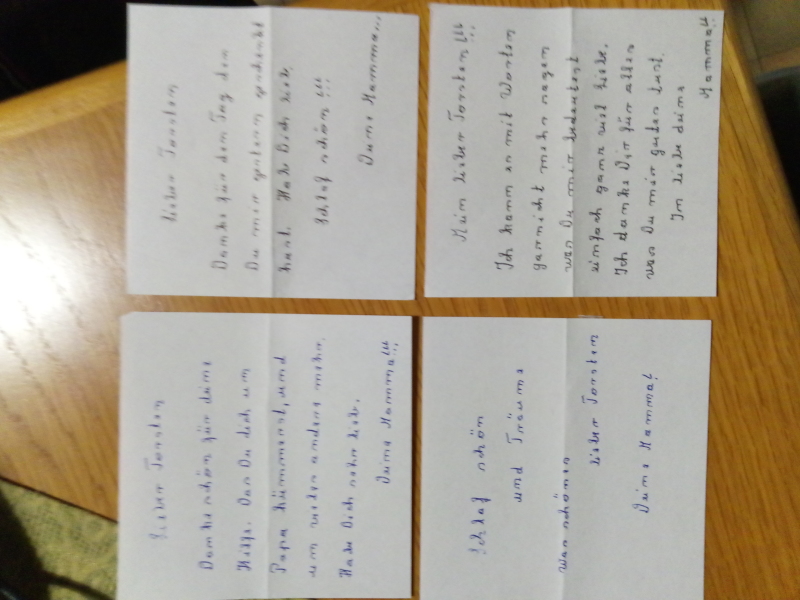 Lieber Torsten
Danke für den Tag den
Du mir gestern geschenkt
hast. Habe Dich lieb.
Schlaf schön !!!
Deine Mamma...
Mein lieber Torsten !!!
Ich kann es mit Worten
garnicht mehr sagen
was Du mir bedeutest
einfach ganz viel Liebe.
Ich danke Dir für alles
was Du mir gutes tust.
In liebe deine
Mamma!!
Lieber Torsten
Dankeschön für deine
Hilfe. Das Du dich um
Papa kümmerst, und
um vieles andere mehr.
Habe Dich sehr lieb.
Deine Mamma!!!
Schlaf schön
und Träume
was schönes
lieber Torsten
Deine Mamma!